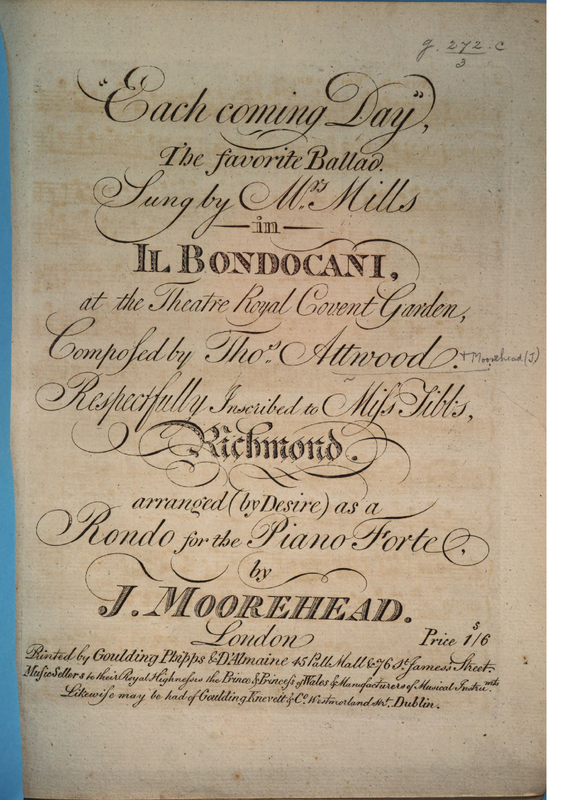 g. 272. c
3
"Each coming Day",
The favorite Ballad.
Sung by Mrs Mills
— in —
IL BONDOCANI,
at the Theatre Royal Covent Garden,
Composed by Thos. Attwood. + Moorehead (J.)
Respectfully Inscribed to Miſs Tibbs,
Richmond.
arranged (by Desire) as a
Rondo for the Piano Forte,
by
J. MOOREHEAD.
London
Price 1s/6
Printed by Goulding Phipps & D'Almaine 45 Pall Mall & 76 St. James's Street.
Music Sellers to their Royal Highneſses the Prince & Princeſs of Wales & Manufacturers of Musical Instrumts
Likewise may be had of Goulding Knevett & Co. Westmorland Str. Dublin.